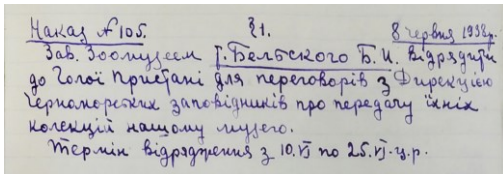 Наказ №105. §1. 8 червня 1938р.
Зав. Зоомузеєм т. Бельського Б. И. відрядити
до Голої Пристані для переговорів з Дирекцією
Чорноморських заповідників про передачу їхніх
колекцій нашому музею.
Термін відрядження з 10.VI по 25.VI-ц.р.